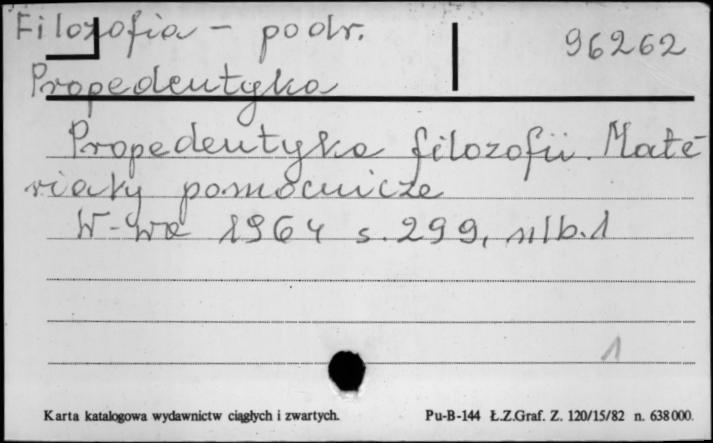 Filozofia - podr.
96262
Propedeutyka
Propedeutyka filozofii. Mate-
riały pomocnicze
W-wa 1964 s. 299, nlb. 1
1
Karta katalogowa wydawnictw ciągłych i zwartych.
Pu-B-144 Ł.Z.Graf. Z. 120/15/82 n. 638000.